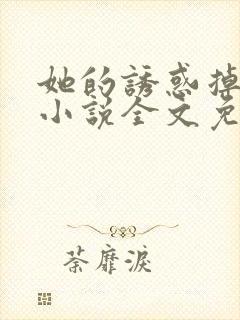 她的誘惑掉
小說全文免
荼靡淚